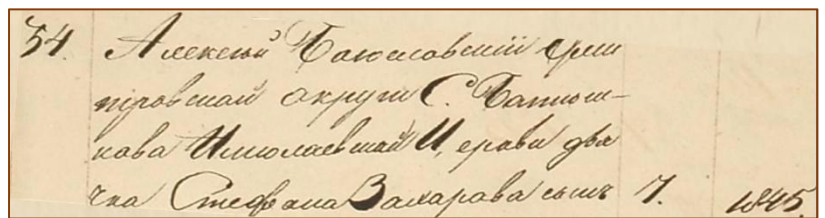 54. Алексѣй Богословскiй Дми
тровской округи С. Батюш-
кова Николаевской Церкви дья
чка Стефана Захарова сынъ 7. 1845.